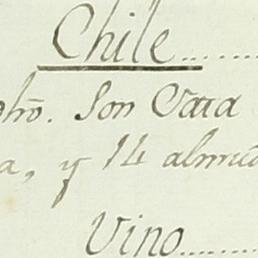 Chile........
dho. Son Cata
a, y 14 almu
Vino........